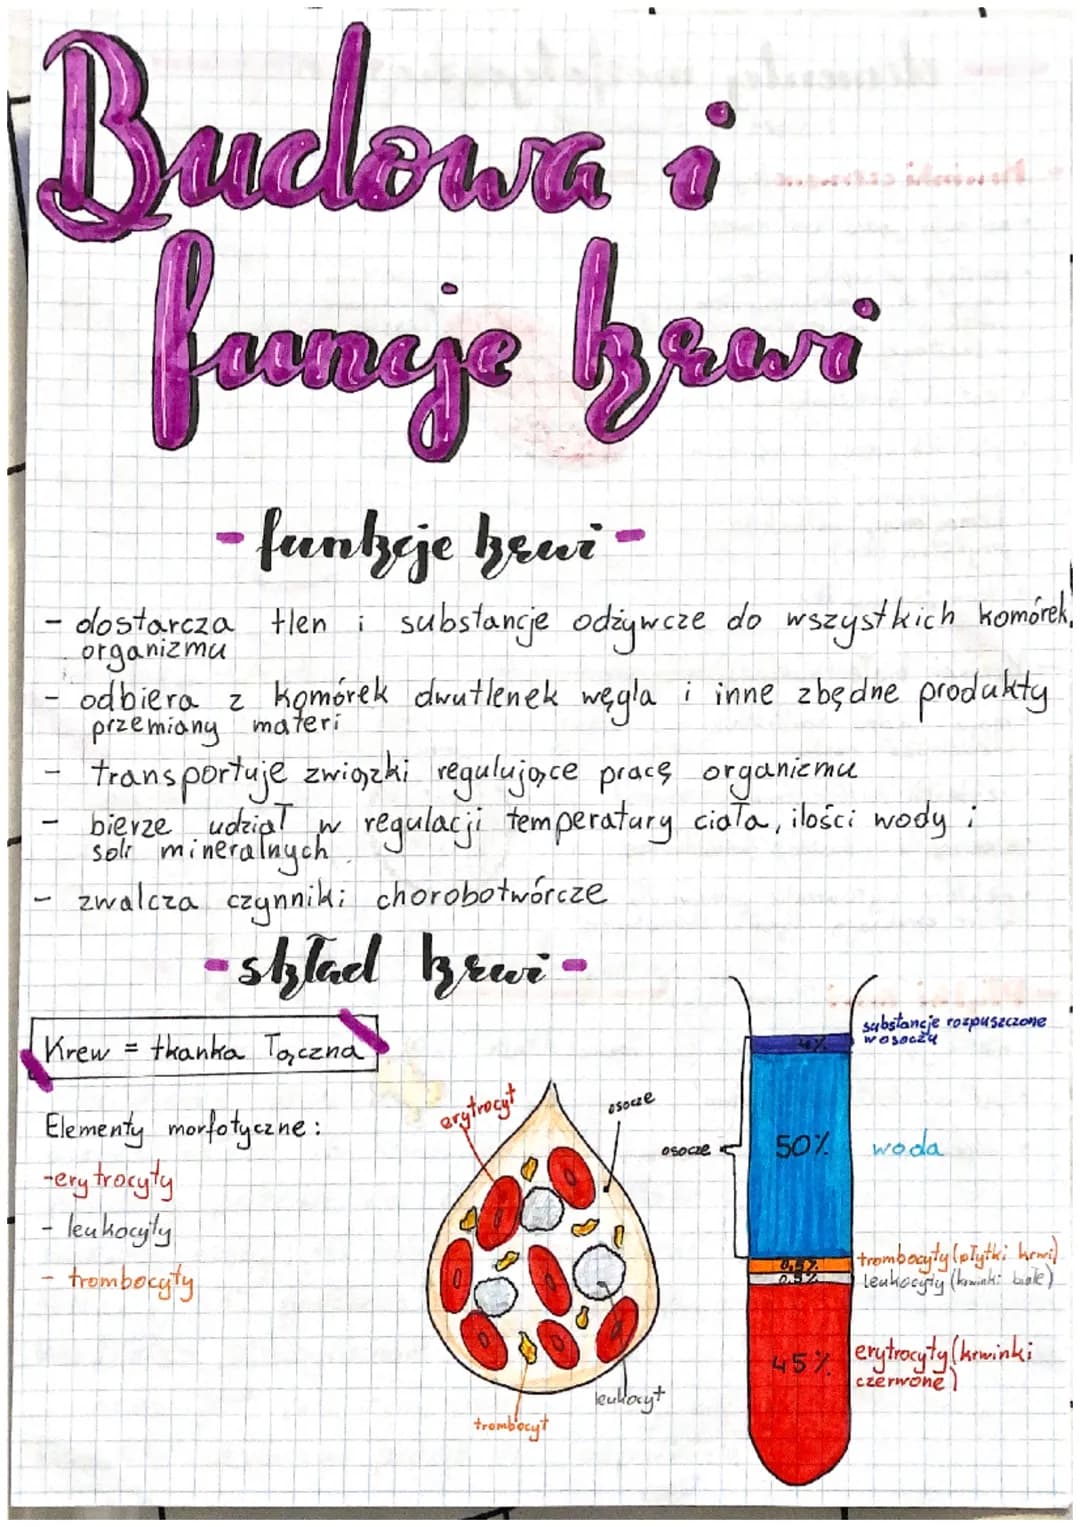 Budowa i
funcje krwi
- funkcje krwi -
- dostarcza tlen i substancje odżywcze do wszystkich komórek
organizmu
- odbiera z komórek dwutlenek węgla i inne zbędne produkty
przemiany materi
- transportuje związki regulujące pracę organizmu
- bierze udział w regulacji temperatury ciała, ilości wody i
soli mineralnych
- zwalcza czynniki chorobotwórcze
- skład krwi -
Krew = tkanka łączna
Elementy morfotyczne:
- erytrocyty
- leukocyty
- trombocyty
erytrocyt
osocze
leukocyt
trombocyt
osocze
substancje rozpuszczone
w osoczu
4%
50%
woda
0,5%
trombocyty (płytki krwi)
0,5%
leukocyty (krwinki białe)
45%
erytrocyty (krwinki
czerwone)